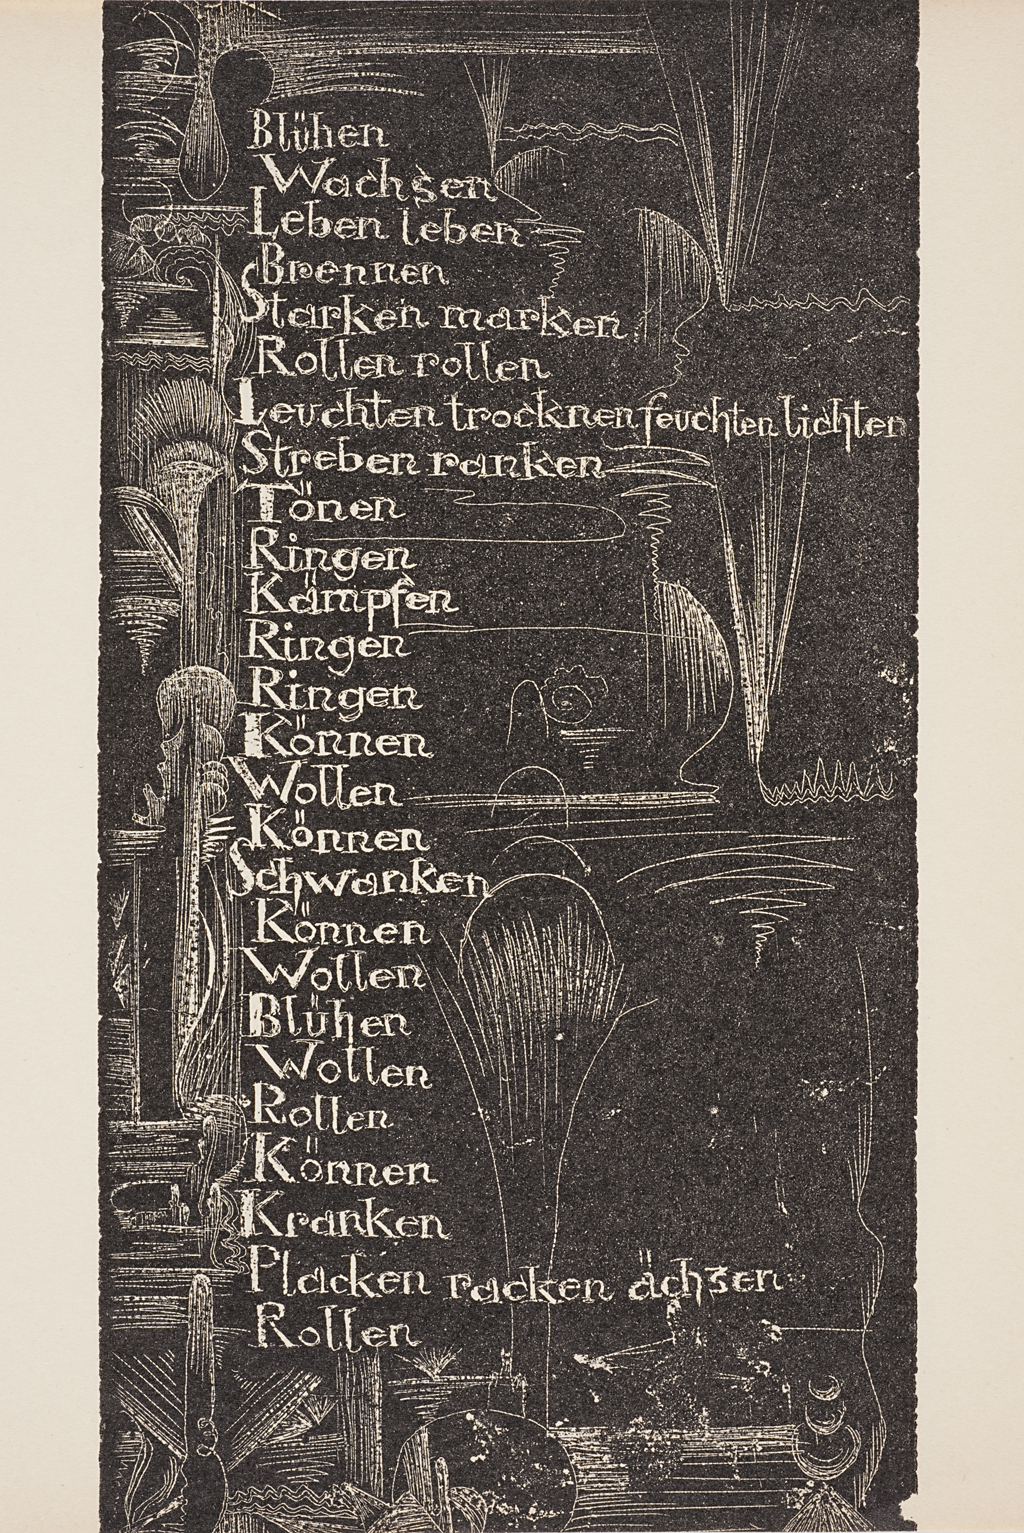 Blühen
Wachsen
Leben leben
Brennen
Starken marken
Rollen rollen
Leuchten trocknen feuchten lichten
Streben ranken
Tönen
Ringen
Kämpfen
Ringen
Ringen
Können
Wollen
Können
Schwanken
Können
Wollen
Blühen
Wollen
Rollen
Können
Kranken
Placken racken ächzen
Rollen